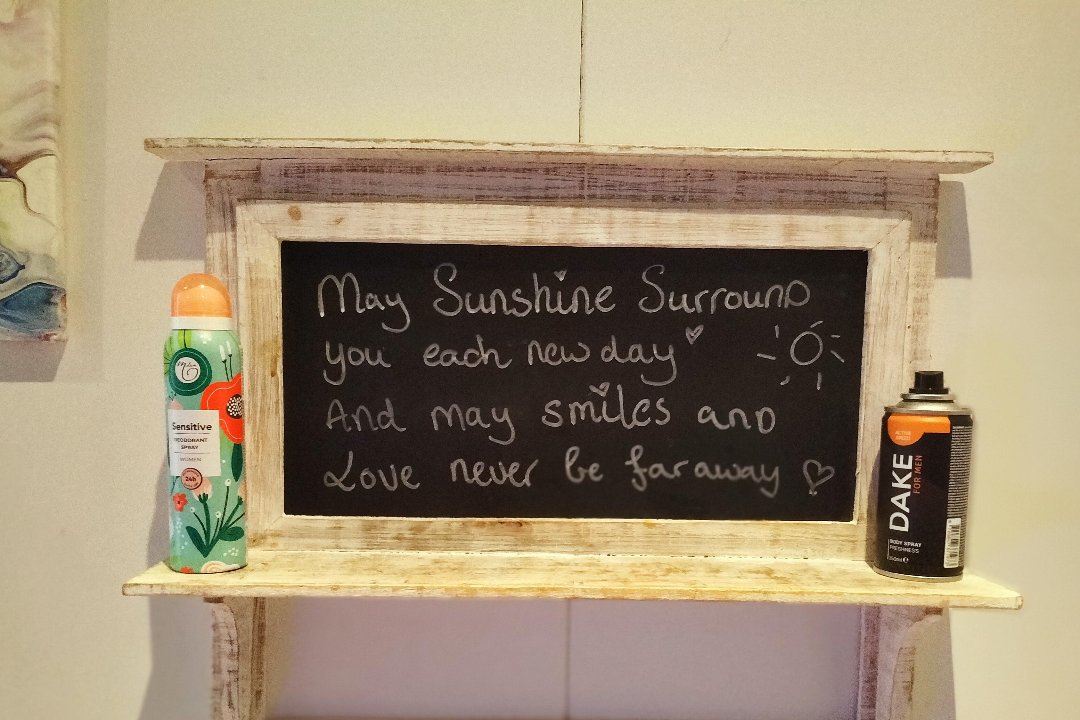 May Sunshine Surround
you each new day
And may smiles and
Love never be far away
Sensitive
DEODORANT
SPRAY
WOMEN
24h
DAKE
FOR MEN
BODY SPRAY
FRESHNESS